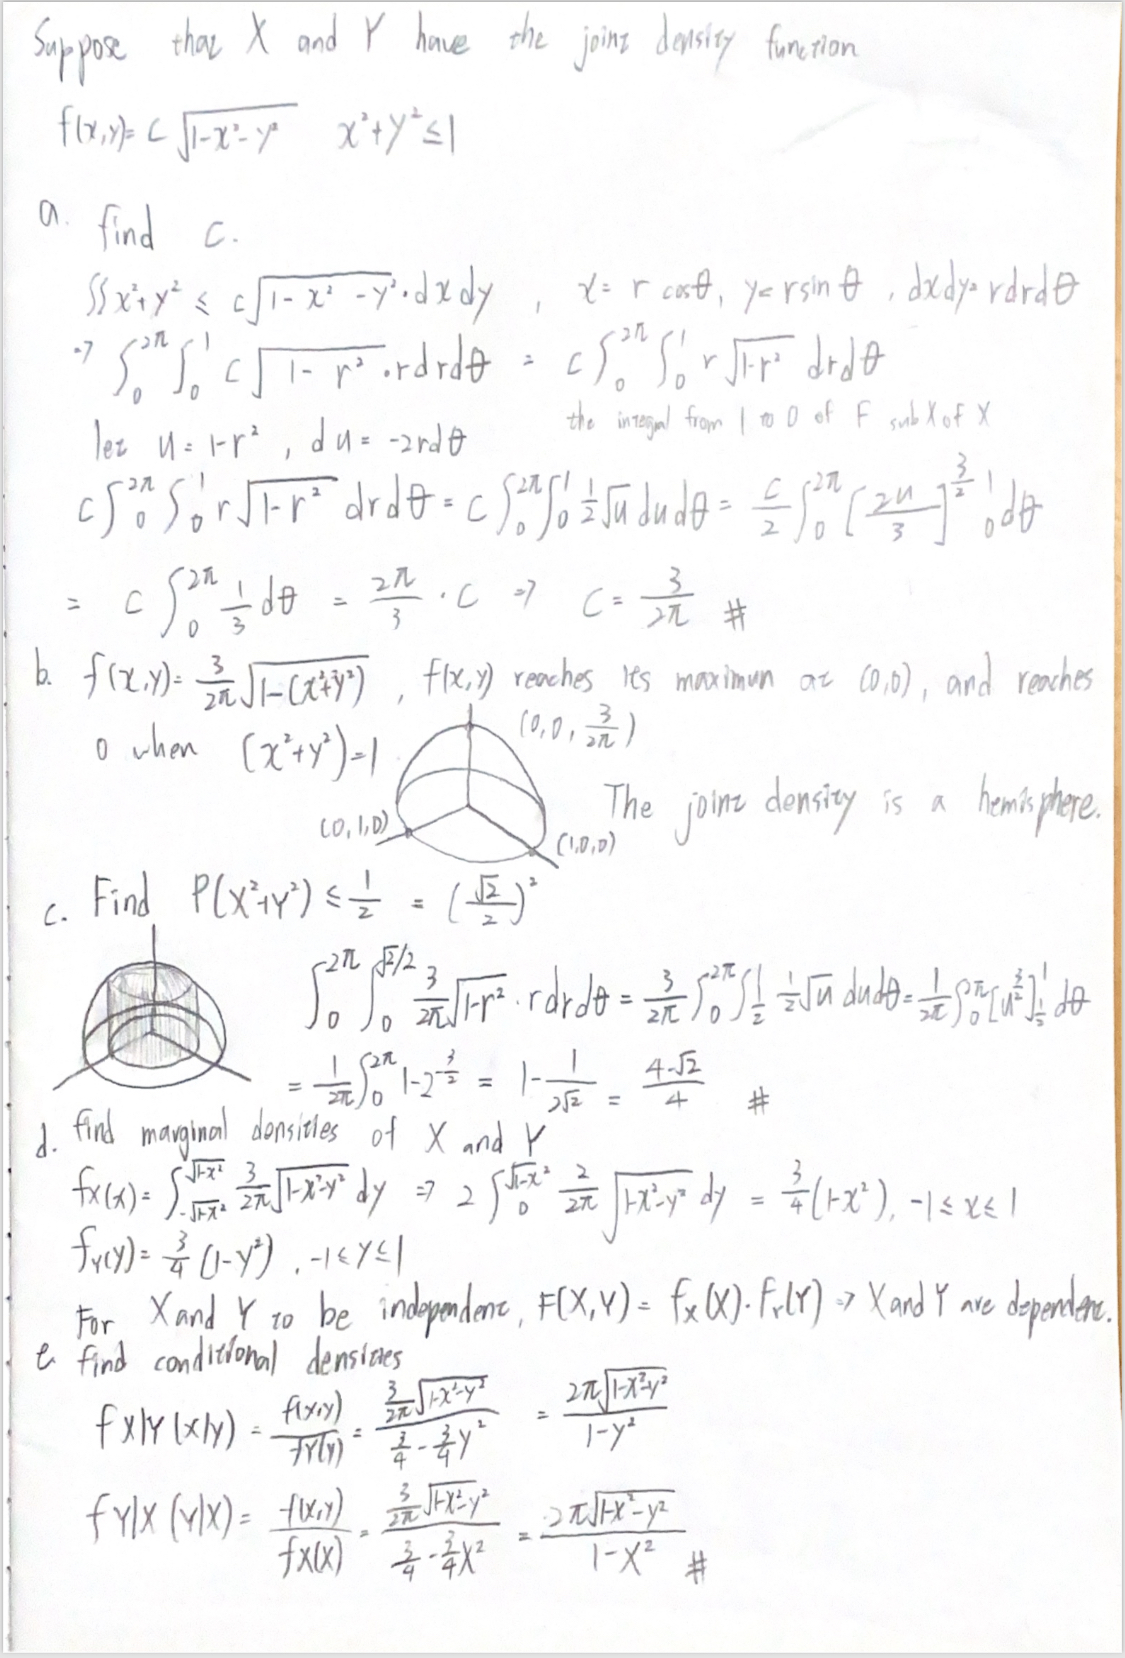 Suppose that X and Y have the joint density function
f(x,y)= c √(1-x²-y²)   x²+y²≤1
a. find c.
∫∫x²+y² ≤ c√(1-x²-y²)·dxdy , x= r cosθ, y=rsinθ , dxdy= rdrdθ
=> ∫₀^2π ∫₀^1 c√(1-r²)·rdrdθ = c∫₀^2π ∫₀^1 r√(1-r²) drdθ
the integral from 1 to 0 of F sub X of X
let u= 1-r² , du= -2rdθ
c∫₀^2π ∫₀^1 r√(1-r²) drdθ = c∫₀^2π ∫₀^1 1/2 √u dudθ = c/2 ∫₀^2π [2u/3]^(3/2) |₀^1 dθ
= c∫₀^2π 1/3 dθ = 2π/3 ·c => c= 3/2π #
b. f(x,y)= 3/2π √(1-(x²+y²)) , f(x,y) reaches its maximun at (0,0), and reaches
0 when (x²+y²)=1
(0,0,3/2π)
The joint density is a hemisphere.
(0,1,0)
(1,0,0)
c. Find P(X²+Y²) ≤ 1/2 = (√2/2)²
∫₀^2π ∫₀^(√2/2) 3/2π √(1-r²)·rdrdθ = 3/2π ∫₀^2π ∫_(1/2)^1 1/2 √u dudθ = 1/2π ∫₀^2π [u^(3/2)]_(1/2)^1 dθ
= 1/2π ∫₀^2π 1-2^(-3/2) = 1- 1/2√2 = (4-√2)/4 #
d. find marginal densities of X and Y
fx(x)= ∫_(-√(1-x²))^(√(1-x²)) 3/2π √(1-x²-y²) dy => 2∫₀^(√(1-x²)) 2/2π √(1-x²-y²) dy = 3/4(1-x²), -1≤x≤1
fY(y)= 3/4 (1-y²) , -1≤y≤1
For X and Y to be independent, F(X,Y)= fx(X)·Fy(Y) => X and Y are dependent.
e. find conditional densities
fX|Y (x|y) = f(x,y)/fY(y) = (3/2π √(1-x²-y²))/(3/4 - 3/4y²) = 2π√(1-x²-y²)/(1-y²)
fY|X (y|X)= f(x,y)/fX(X) = (3/2π √(1-x²-y²))/(3/4 - 3/4X²) = 2π√(1-x²-y²)/(1-X²) #